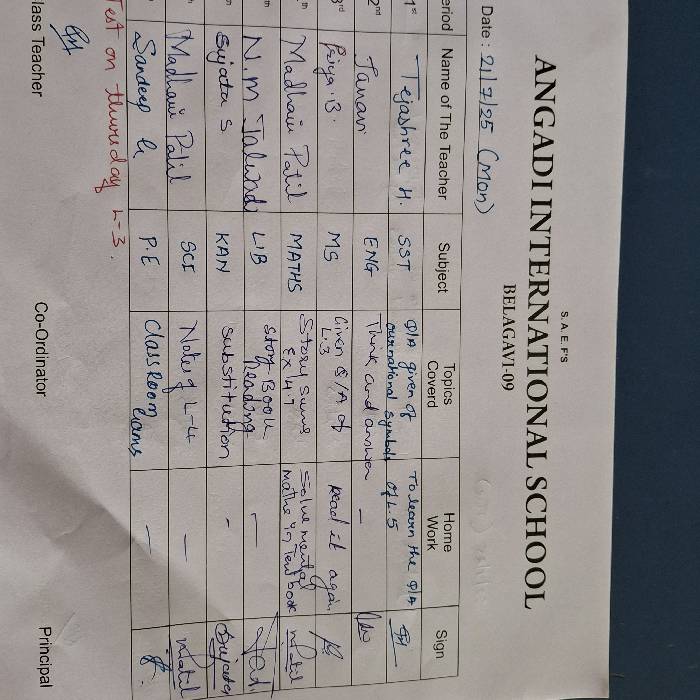 S. A. E. F'S
ANGADI INTERNATIONAL SCHOOL
BELAGAVI-09
Date : 21/7/25 (Mon)
eriod Name of The Teacher Subject Topics Coverd Home Work Sign
1st Tejashree H. SST Q/A given of our national symbols To learn the Q/A of L.5
2nd Janavi ENG Think and answer –
3rd Priya.B. MS Given Q/A of L.3 Read it again
th Madhavi Patil MATHS Story sums Ex 4.7 Solve mental maths in Text book
th N.M LIB Story Book Reading –
th Sujata S KAN substitution –
Madhavi Patil SCI Notes of L-4 –
Sandeep G P.E Classroom Games –
Test on thursday L-3.
lass Teacher Co-Ordinator Principal